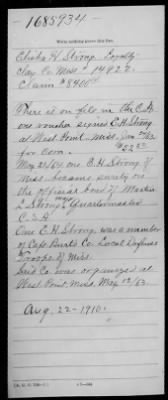 1685934
Write nothing above this line.
Elisha H. Strong. Loyalty
Clay Co. Miss. 14927.
Claim $8400
There is on file in the C.A.
one voucher signed E.H. Strong
at West Point, Miss. Jan 2/63
for Corn. $52.50
May 21/64 one E.H. Strong of
Miss. became surety on
the official bond of
L Strong Quartermaster
C.S.A
One E.H. Strong was a member
of Capt. Co. Local Defense
Troops of Miss.
Said Co. was organized at
West Point Miss. May 12/63.
Aug. 22-1910.